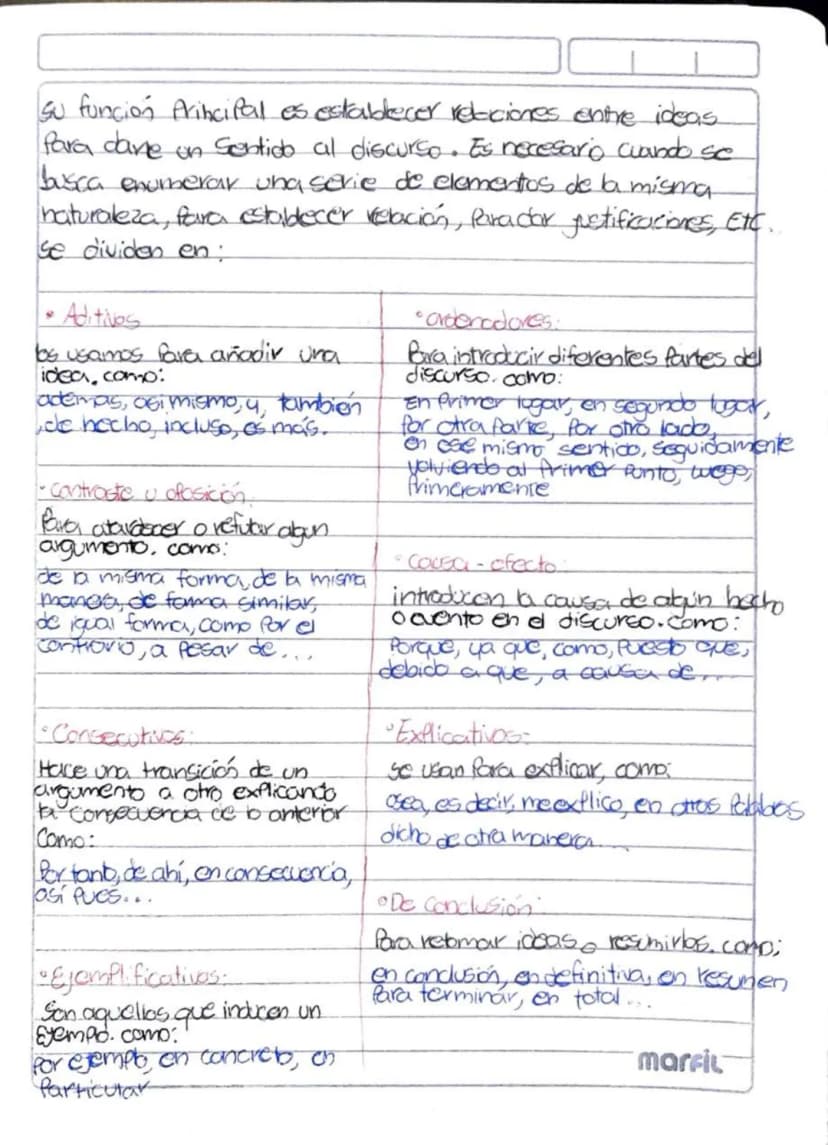 su función Principal es establecer relaciones entre ideas
Para darle un sentido al discurso. Es necesario cuando se
busca enumerar una serie de elementos de la misma
naturaleza, Para establecer relación, Para dar justificaciones, Etc.
se dividen en:
• Aditivos
los usamos Para añadir una
idea. como:
además, asi mismo, y, también
, de hecho, incluso, es más.
• contraste u oposición
Para o refutar algun
argumento. como:
de la misma forma, de la misma
manera, de forma similar,
de igual forma, como Por el
contrario, a Pesar de...
• Consecutivos:
Hace una transición de un
argumento a otro explicando
la consecuencia de lo anterior
Como:
Por tanto, de ahí, en consecuencia,
así Pues...
• Ejemplificativos:
Son aquellos que inducen un
Ejemplo. como:
Por ejemplo, en concreto, en
Particular
• ordenadores:
Para introducir diferentes Partes del
discurso. como:
En Primer lugar, en segundo lugar,
Por otra Parte, Por otro lado,
en ese mismo sentido, seguidamente
volviendo al Primer Punto, luego,
Primeramente
• causa - efecto
introducen la causa de algún hecho
o evento en el discurso. como:
Porque, ya que, como, Puesto que,
debido a que, a causa de...
• Explicativos:
se usan Para explicar, como:
osea, es decir, me explico, en otras Palabras
dicho de otra manera...
• De Conclusión:
Para retomar ideas o resumirlas. como:
en conclusión, en definitiva, en resumen
Para terminar, en total...
marfil